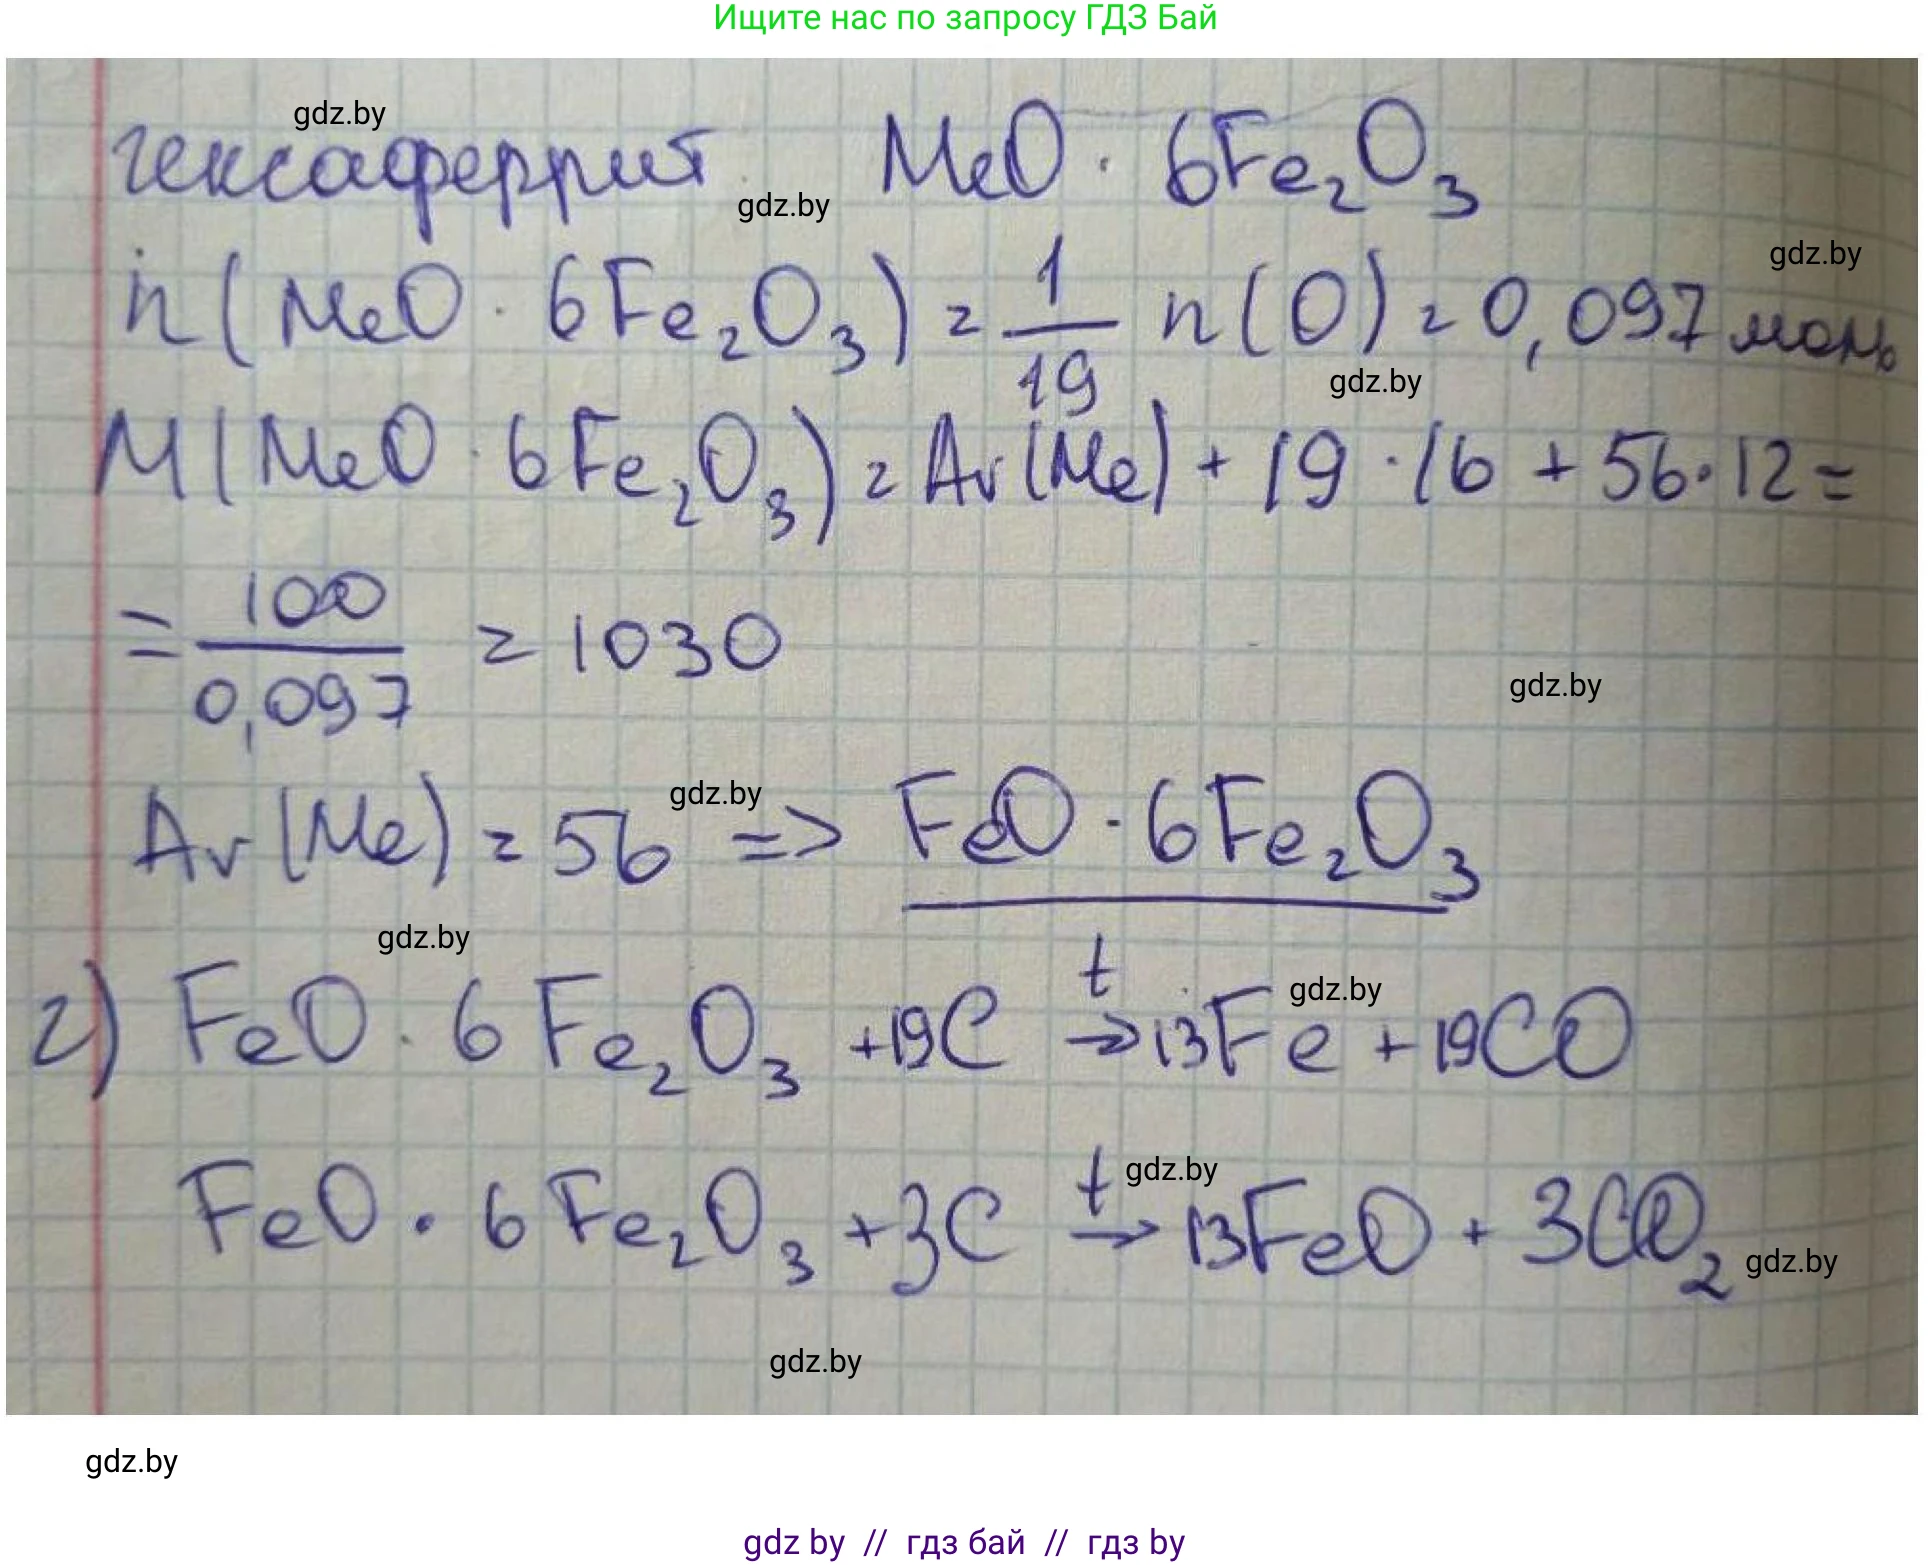 Ищите нас по запросу ГДЗ Бай
gdz.by
гексаферрит MeO · 6Fe₂O₃
gdz.by
gdz.by
n(MeO · 6Fe₂O₃) = 1/19 n(O) = 0,097 моль
gdz.by
M(MeO · 6Fe₂O₃) = Ar(Me) + 19 · 16 + 56 · 12 =
= 100/0,097 = 1030
gdz.by
gdz.by
Ar(Me) = 56 => FeO · 6Fe₂O₃
gdz.by
gdz.by
г) FeO · 6Fe₂O₃ + 19C t→ 13Fe + 19CO
gdz.by
FeO · 6Fe₂O₃ + 3C t→ 13FeO + 3CO₂
gdz.by
gdz.by
gdz.by
gdz by // гдз бай // гдз by